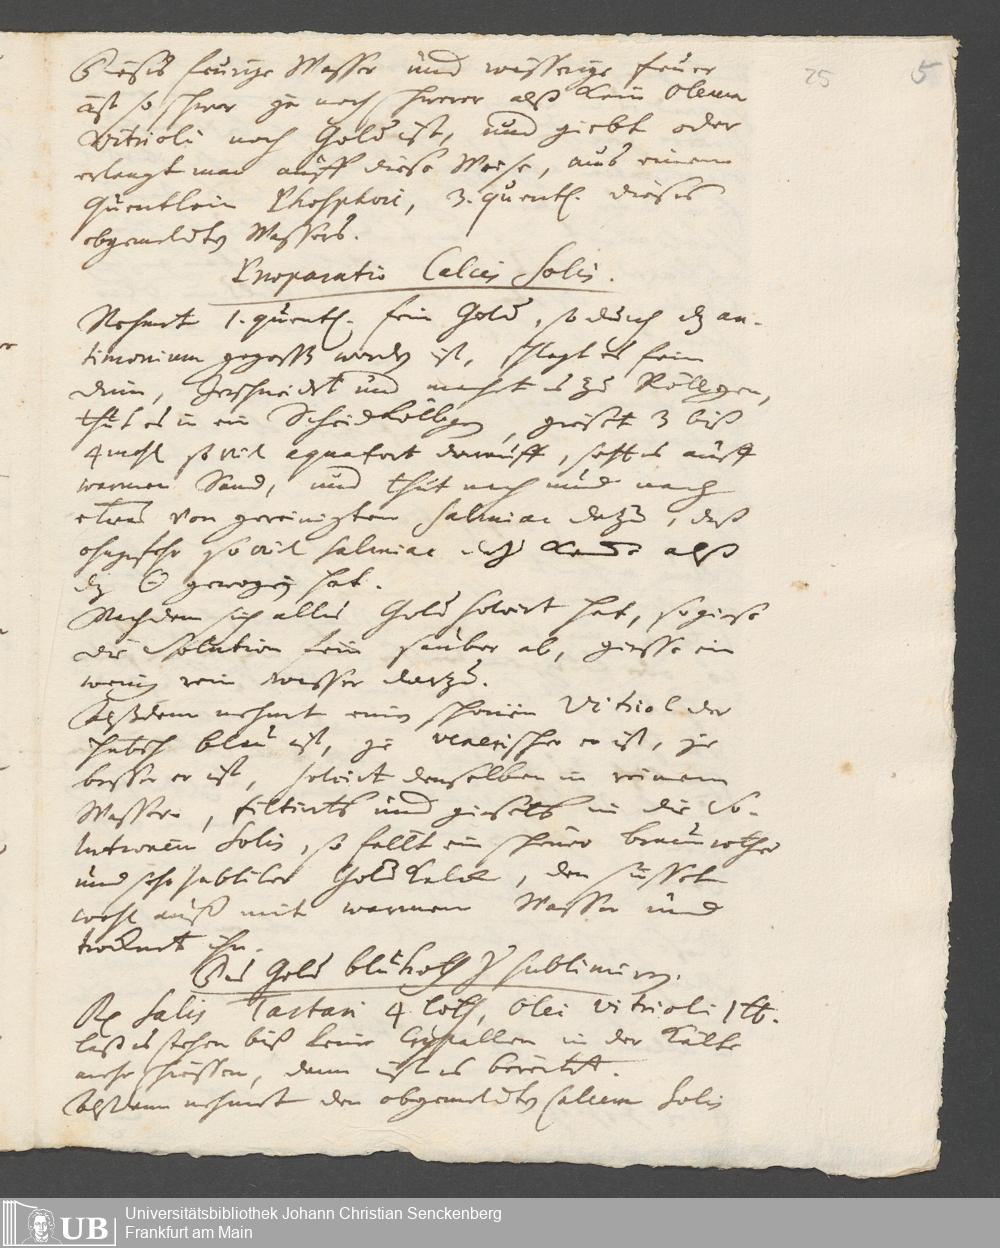 25 5
Dieses feurige Wasser und wässerige feuer
ist so schwer ja noch schwerer alß kein Oleum
Vitrioli noch Gold ist, und giebt oder
erlangt man auff diese Weise, aus einem
quentlein Phosphori, 3. quentl. dieses
obgemeldten Wassers.
Praeparatio Calcis Solis.
Nehmet 1. quentl. fein Gold, so durch dz an-
timonium gegossen worden ist, schlagt es fein
dünn, zerschneidet und machet es zu Röllgen,
thut es in ein Scheidkölbgen, gießt 3 biß
4 mahl so viel aquafort darauff, setzt es auff
warmen Sand, und thut nach und nach
etwas von gereinigten Salmiac dazu, daß
ohngefehr so viel Salmiac dazu komme alß
dz ☉ gewogen hat.
Nachdem sich alles Gold solvirt hat, so giesse
die Solution fein sauber ab, giesse ein
wenig rein wasser darzu.
Alßdann nehmet einen schönen Vitriol der
hübsch blau ist, je venerischer er ist, je
besser er ist, solvirt denselben in reinem
Wasser, filtrirts und giessets in die So-
lutionem Solis, so fällt ein schöner braunrother
und sehr subtiler Gold Kalck, den süsset
wohl auß mit warmem Wasser und
trocknet ihn.
Das Gold bluthroth zu sublimiren.
Rp Salis Tartari 4 loth, Olei Vitrioli 1 ℔.
laß es stehen biß keine Crystallen in der Kälte
mehr schiessen, dann ist es bereitet.
Alßdann nehmet den obgemeldten Calcem Solis
UB
Universitätsbibliothek Johann Christian Senckenberg
Frankfurt am Main